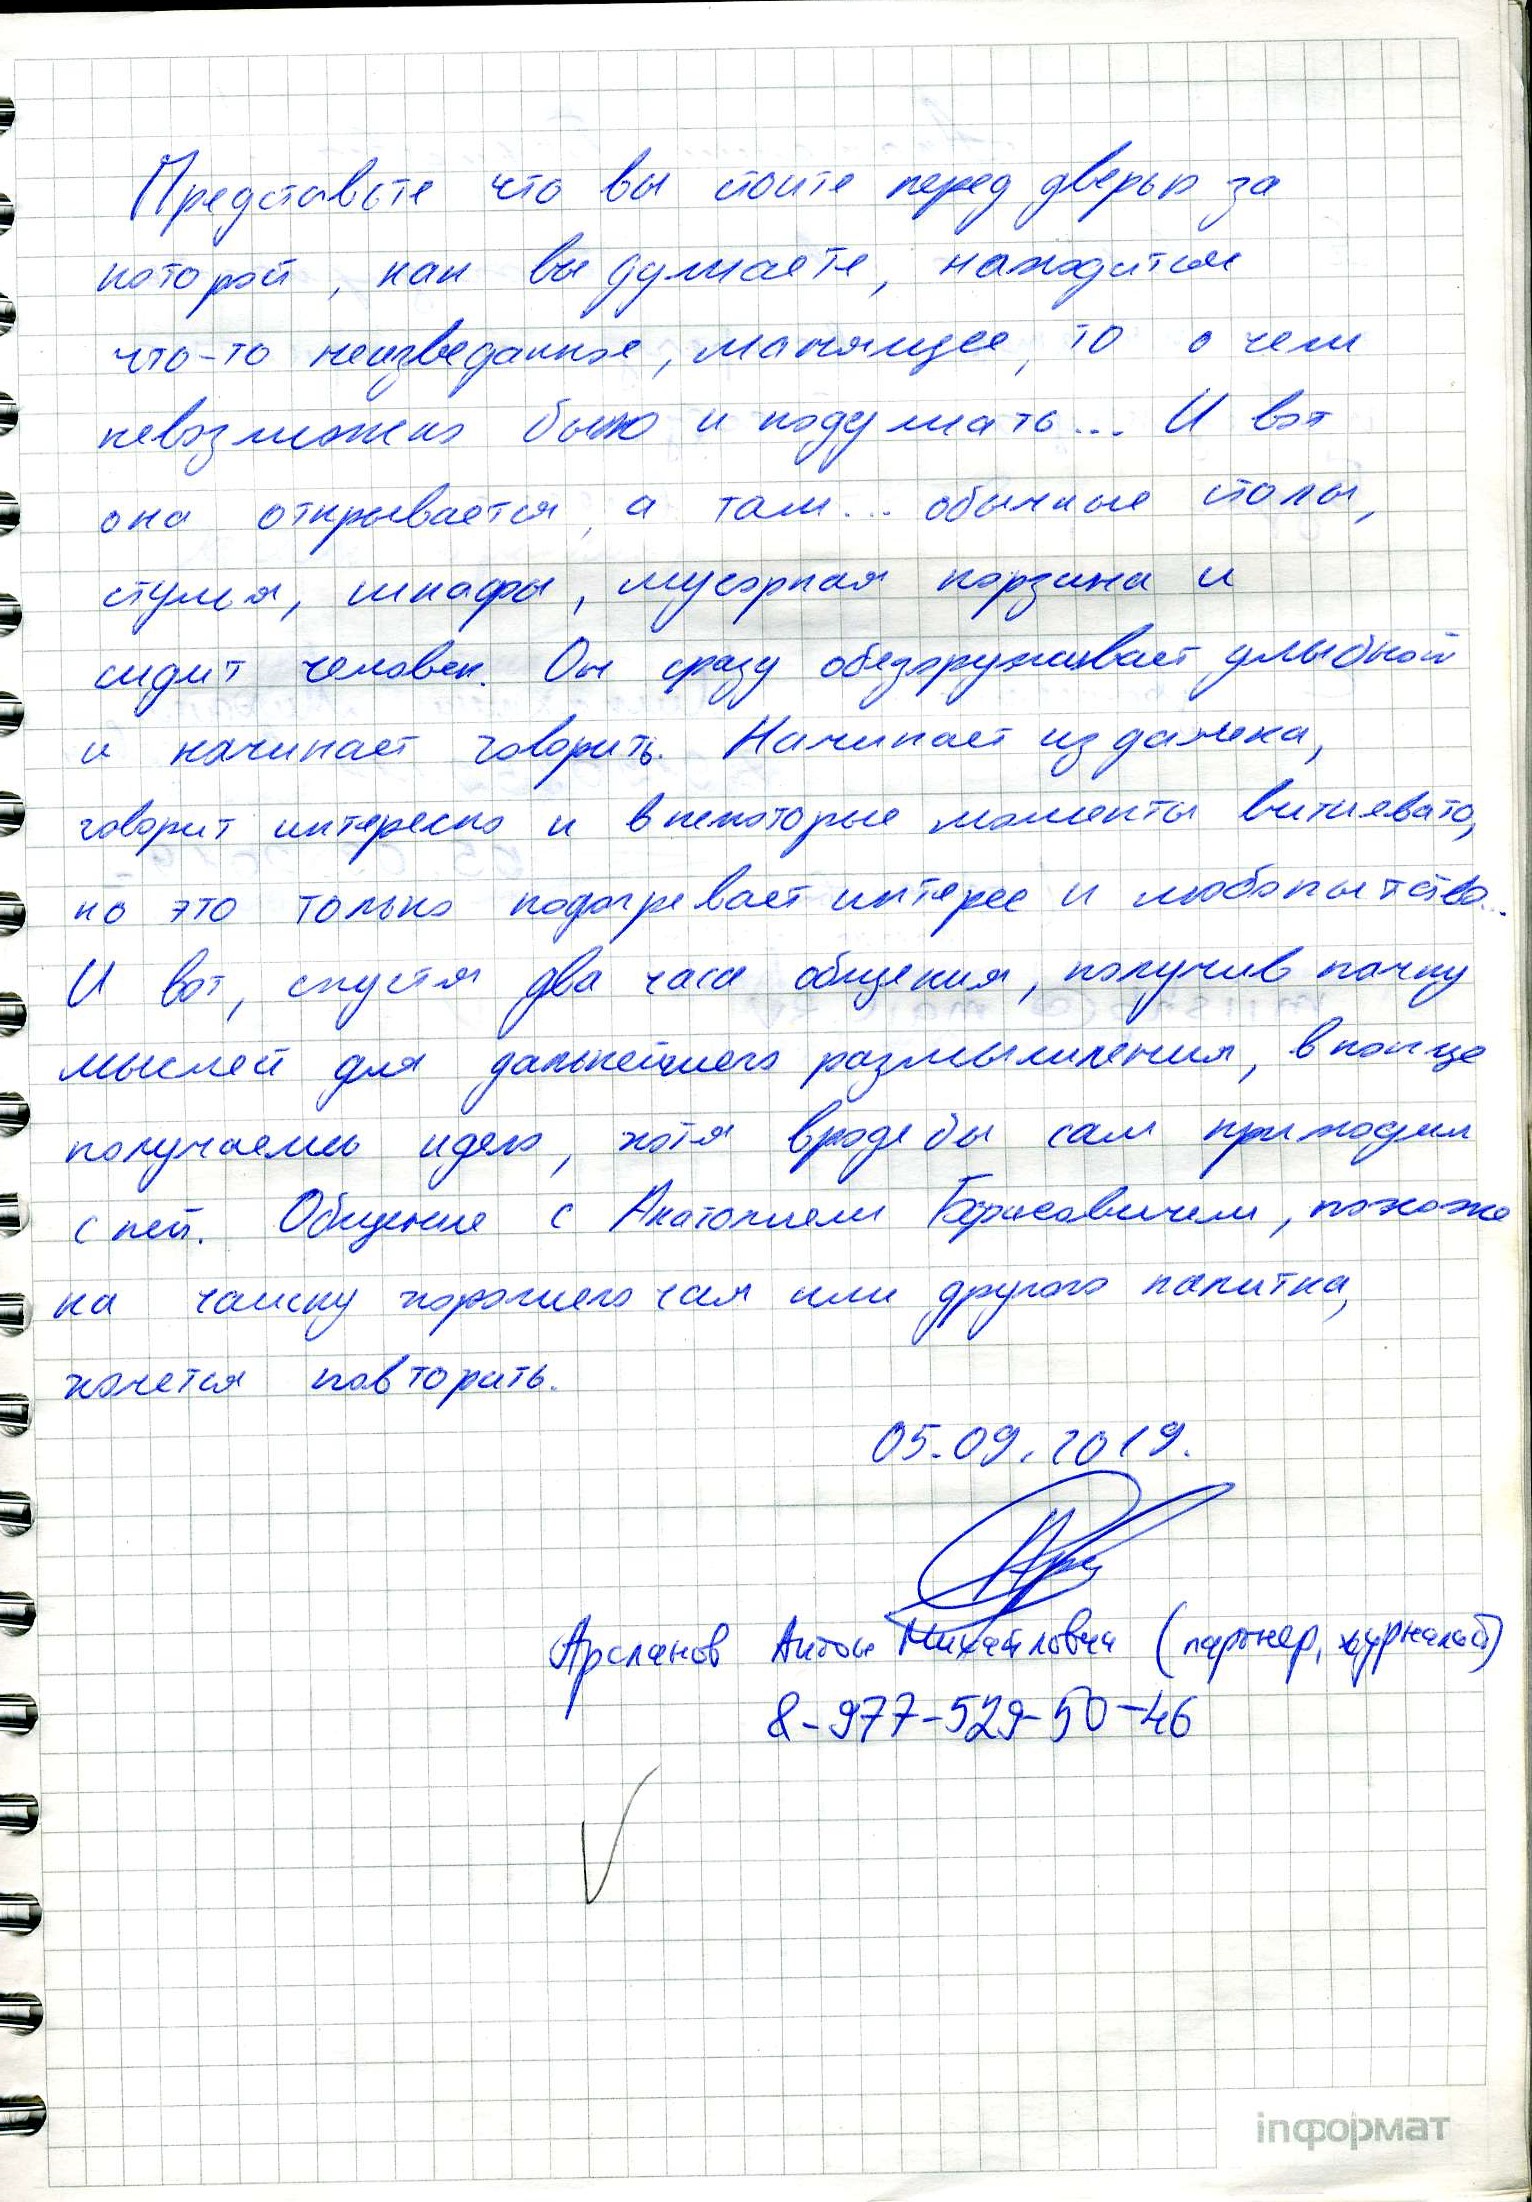 Представьте что вы стоите перед дверью за
которой, как вы думаете, находится
что-то неизведанное, манящее, то о чем
невозможно было и подумать... И вот
она открывается, а там... обычные столы,
стулья, шкафы, мусорная корзина и
сидит человек. Он сразу обезоруживает улыбкой
и начинает говорить. Начинает из далека,
говорит интересно и в некоторые моменты витиевато,
но это только подогревает интерес и любопытство...
И вот, спустя два часа общения, получив пачку
мыслей для дальнейшего размышления, в конце
получаешь идею, хотя вроде бы сам приходил
с ней. Общение с Анатолием Борисовичем, похоже
на чашку хорошего чая или другого напитка,
хочется повторить.
05.09.2019.
Арсланов Антон Михайлович (партнер, журналист)
8-977-529-50-46
inформат